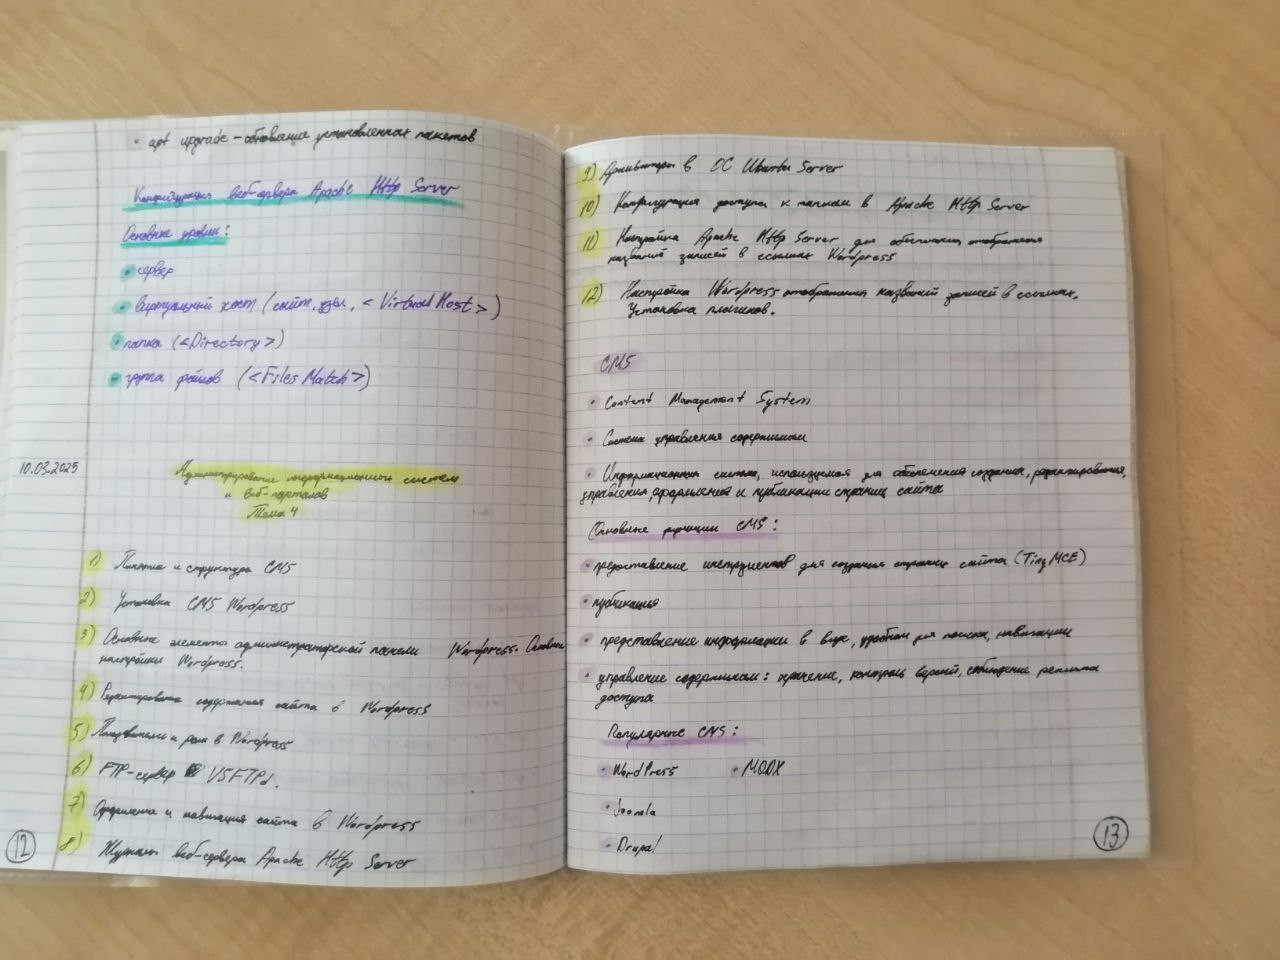 • apt upgrade – обновление установленных пакетов
Конфигурация веб-сервера Apache Http Server
Основные уровни:
• сервер
• виртуальный хост (сайт, узел, <Virtual Host>)
• папка (<Directory>)
• группа файлов (<Files Match>)
10.03.2025
Администрирование информационных систем
и веб-порталов
Тема 4
1) Понятие и структура CMS
2) Установка CMS Wordpress
3) Основные элементы администраторской панели Wordpress. Основные
настройки Wordpress.
4) Редактирование содержания сайта в Wordpress
5) Пользователи и роли в Wordpress
6) FTP-сервер VSFTPd.
7) Оформление и навигация сайта в Wordpress
8) Журналы веб-сервера Apache Http Server
12
9) Архиваторы в ОС Ubuntu Server
10) Конфигурация доступа к папкам в Apache Http Server
11) Настройка Apache Http Server для обеспечения отображения
названий записей в ссылках Wordpress
12) Настройка Wordpress отображения названий записей в ссылках.
Установка плагинов.
CMS
• Content Management System
• Система управления содержимым
• Информационная система, используемая для обеспечения создания, редактирования,
управления, оформления и публикации страниц сайта
Основные функции CMS:
• предоставление инструментов для создания страниц сайта (TinyMCE)
• публикация
• представление информации в виде, удобном для поиска, навигации
• управление содержимым: хранение, контроль версий, соблюдение режима
доступа
Популярные CMS:
• WordPress • MODX
• Joomla
• Drupal
13